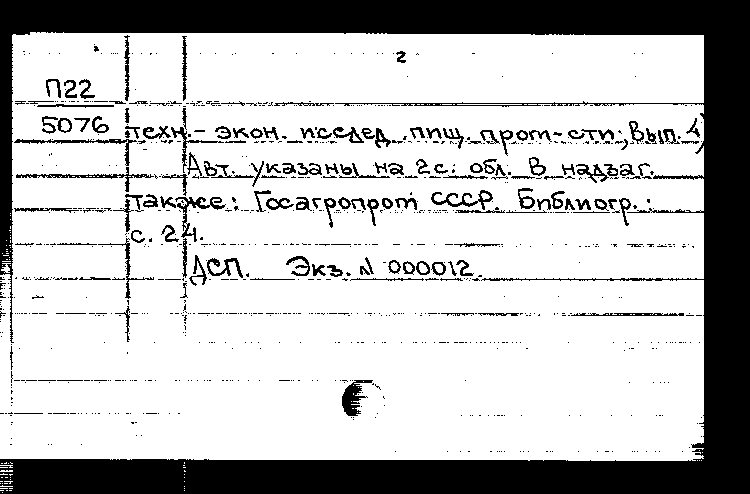 2
П22
5076
техн.- экон. исслед. пищ. пром-сти; Вып. 4)
Авт. указаны на 2 с. обл. В надзаг.
также: Госагропром СССР. Библиогр.:
с. 24.
ДСП. Экз. N 000012.